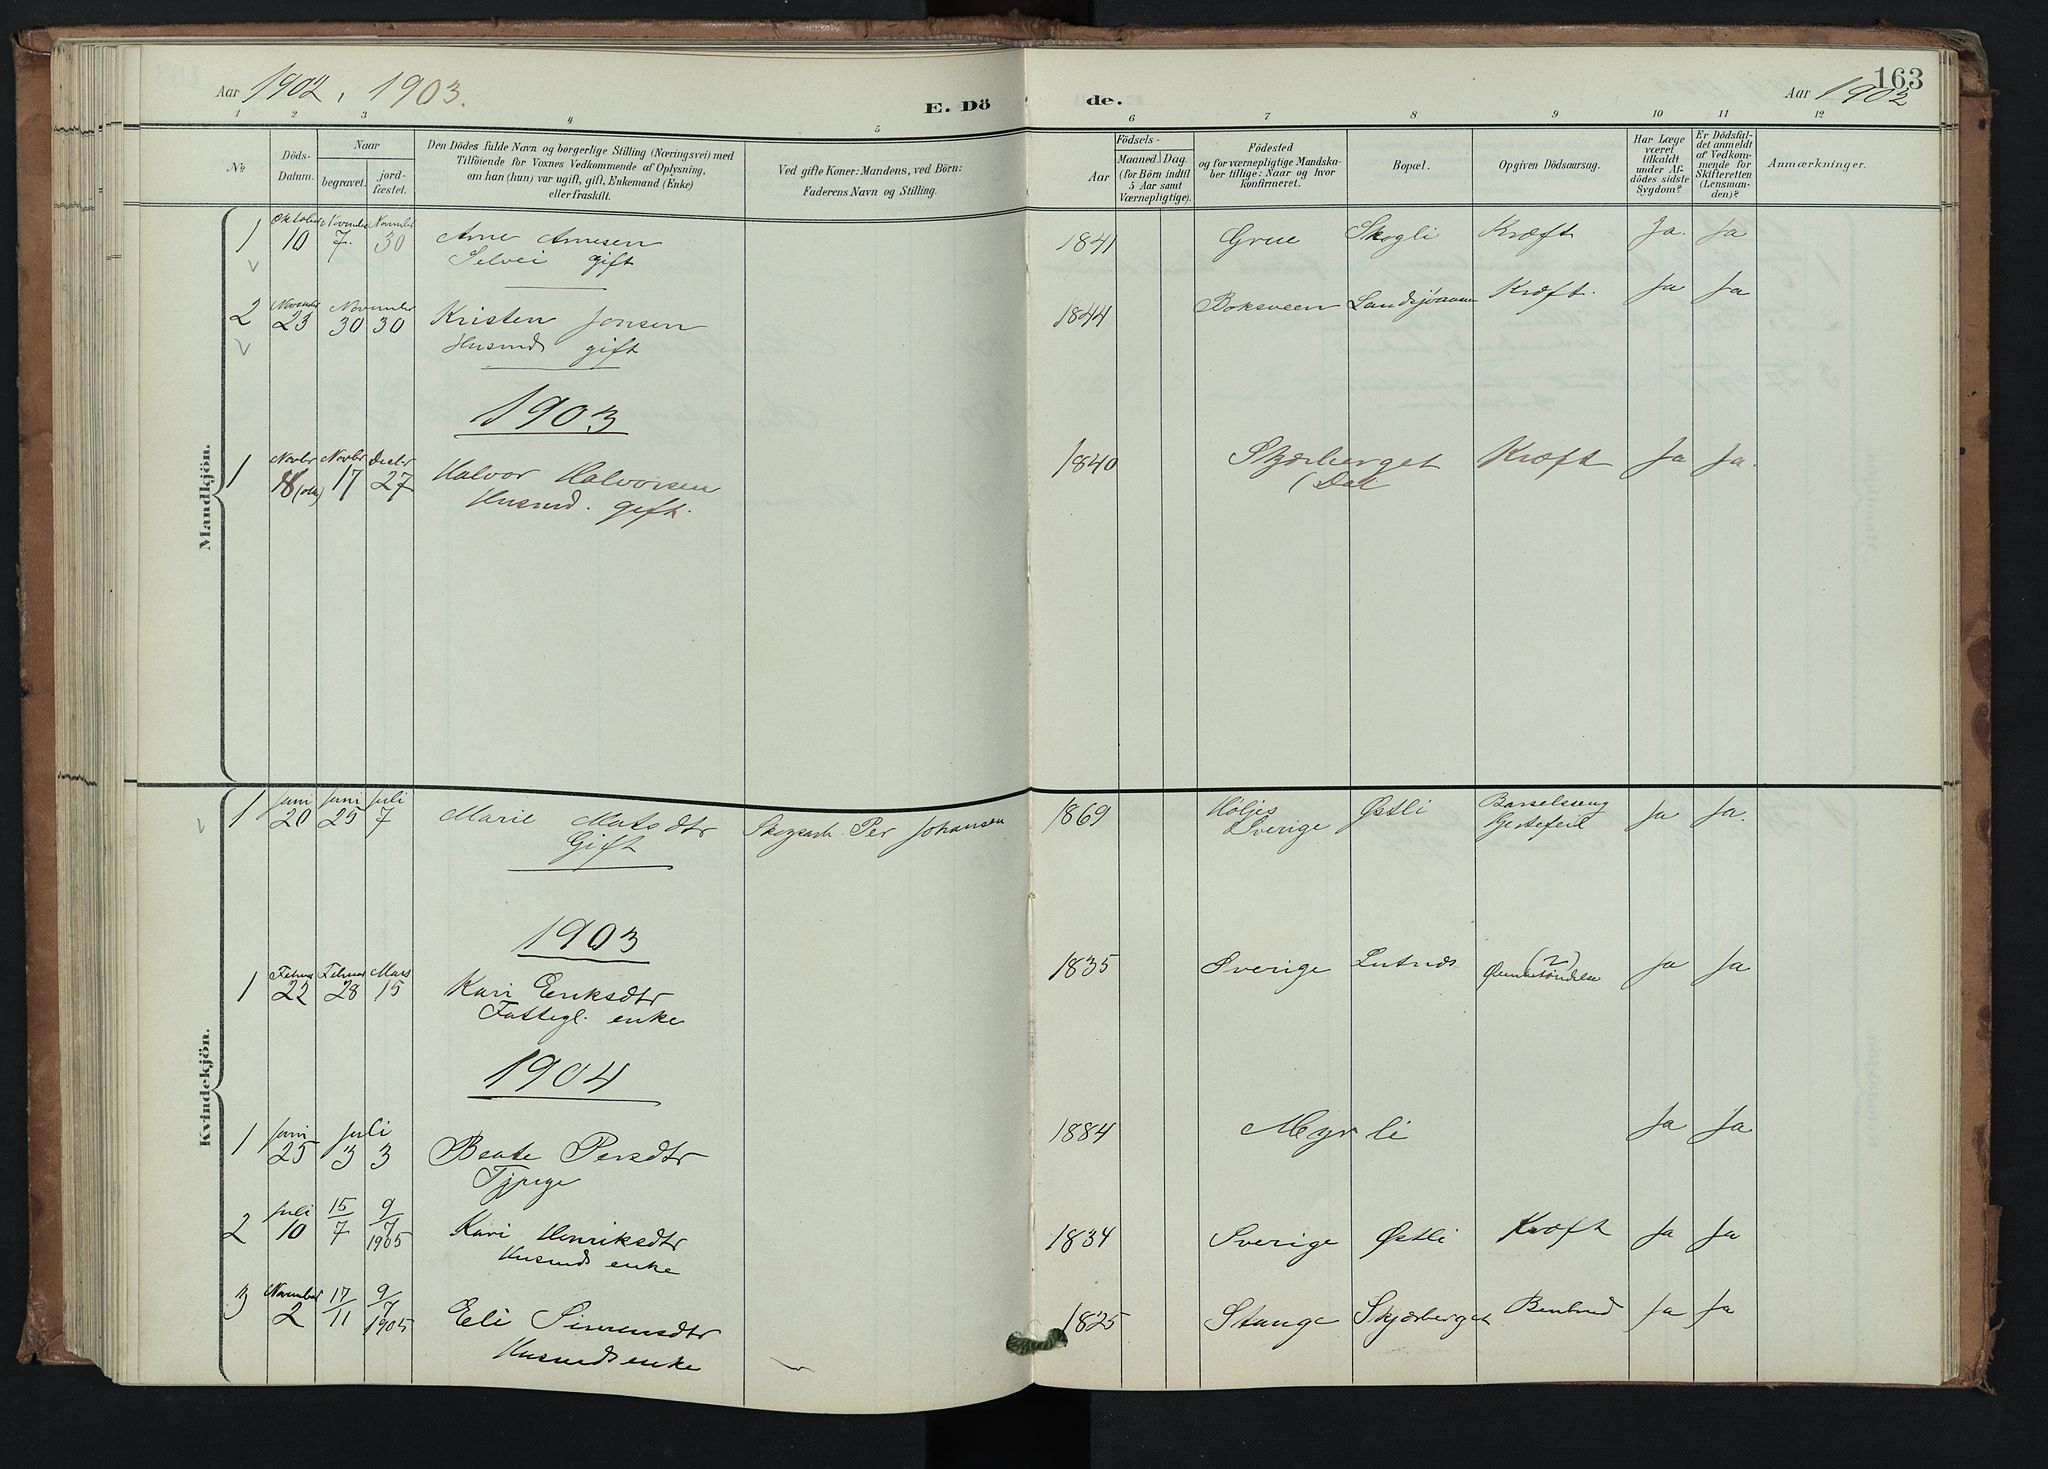 Aar 1902, 1903.
E. Dö
de.
163
Aar 1902
1 2 3 4 5 6 7 8 9 10 11 12
No
Döds-
Datum.
Naar
begravet.
jord-
fæstet.
Den Dödes fulde Navn og borgerlige Stilling (Næringsvei) med
Tilföiende for Voxnes Vedkommende af Oplysning,
om han (hun) var ugift, gift, Enkemand (Enke)
eller fraskilt.
Ved gifte Koner: Mandens, ved Börn:
Faderens Navn og Stilling.
Födsels-
Aar
Maaned. Dag.
(for Börn indtil
5 Aar samt
Værnepligtige).
Födested
og for værnepligtige Mandska-
ber tillige: Naar og hvor
konfirmeret.
Bopæl.
Opgiven Dödsaarsag.
Har Læge
været
tilkaldt
under Af-
dödes sidste
Sygdom?
Er Dödsfal-
det anmeldt
af Vedkom-
mende for
Skifteretten
(Lensman-
den)?
Anmærkninger.
Mandkjön.
1 Oktober 10 November 7. November 30 Arne Arnesen 1841 Grue Skogli Kræft Ja. Ja
Selvei gift
2 November 23 November 30 30 Kristen Jonsen 1844 Boksveen Kræft. Ja Ja
Husmd gift
1903
1 Novbr 8 Novbr 17 Decbr 27 Halvor Halvorsen 1840 Skjærberget Kræft Ja Ja.
(Dal
Husmd. gift.
Kvindekjön.
1 Juni 20 Juni 25 Juli 7 Marie Matsdtr Skogsarb. Per Johansen 1869 Höljes Østli Barselseng Ja Ja.
Gift Sverige
1903
1 Februar 22 Februar 28 Mars 15 Kari Eriksdtr 1835 Sverige Lutnds (2) Ja Ja
Fattigl. enke
1904
1 Juni 25 Juli 3 3 Beate Persdtr 1884 Myrli Ja Ja
Tjpige
2 Juli 10 15/7 9/7 1905 Kari Henriksdtr 1834 Sverige Østli Kræft Ja Ja
Husmds enke
3 November 2 17/11 9/7 1905 Eli Simensdtr 1825 Stange Skjærberget Ja Ja
Husmds enke